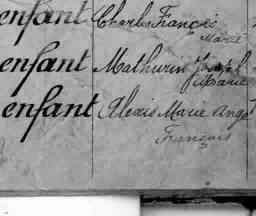 enfant Charles Francois
Marie
enfant Mathurin Joseph
Marie
enfant Alexis Marie Ange
François